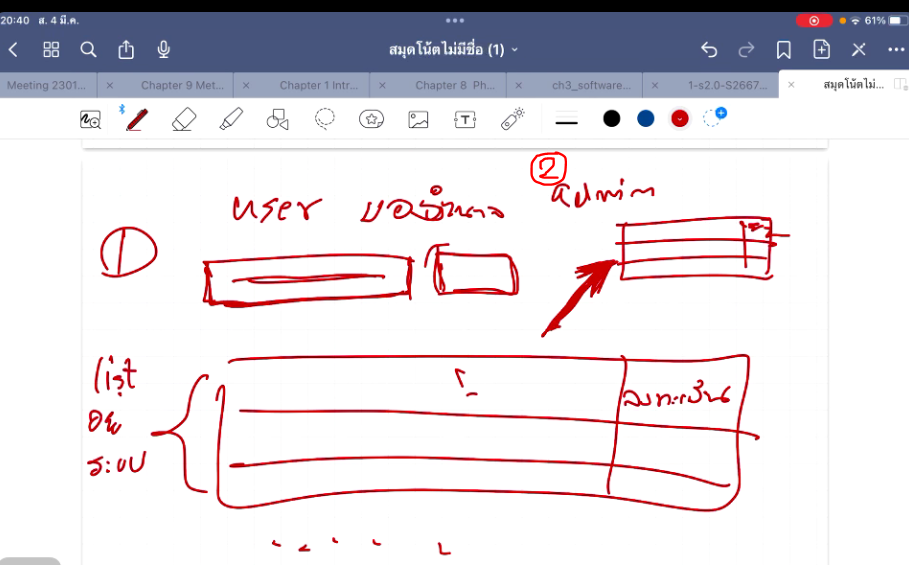 20:40 ส. 4 มี.ค.
61%
สมุดโน้ตไม่มีชื่อ (1)
Meeting 2301...
Chapter 9 Met...
Chapter 1 Intr...
Chapter 8 Ph...
ch3_software...
1-s2.0-S2667...
สมุดโน้ตไม่...
T
2
user ขออำนาจ
admin
1
list
ลงทะเบียน
ระบบ